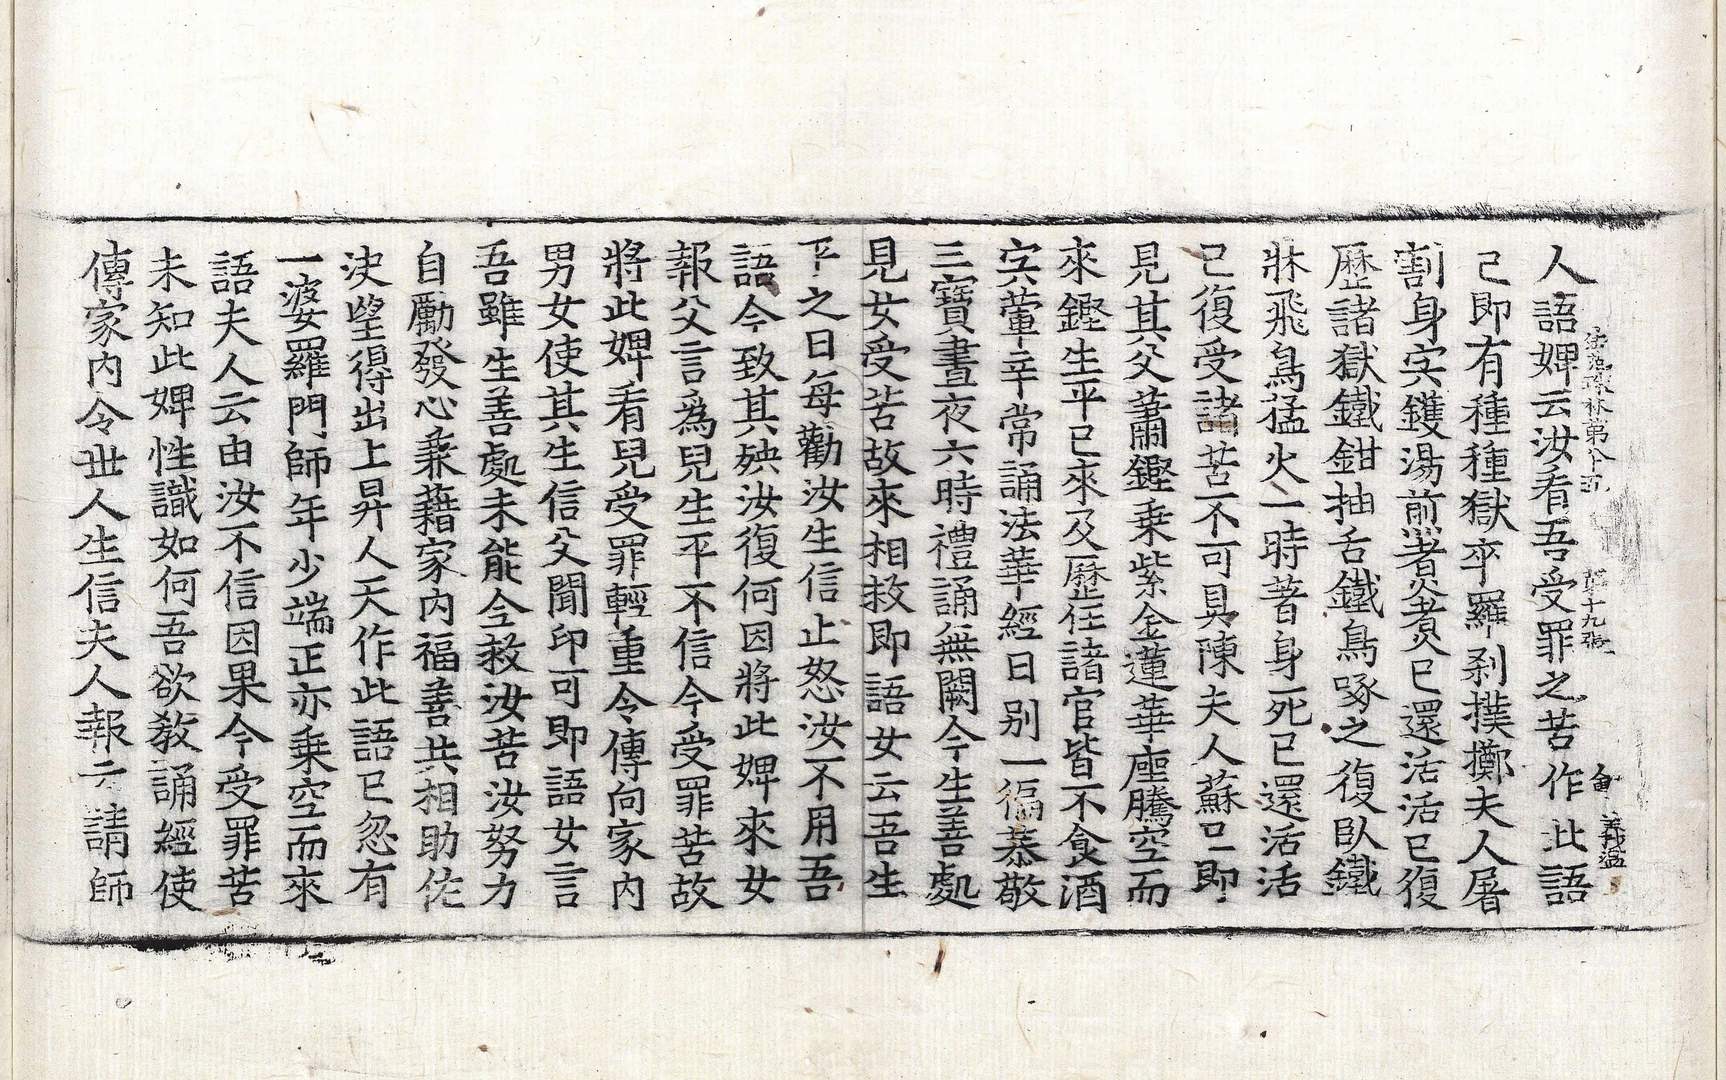 法苑珠林第十九 第十九張 侖 義溫
人語婢云汝看吾受罪之苦作此語
已即有種種獄卒羅剎撲擲夫人屠
割身宍鑊湯前著煑已還活活已復
歷諸獄鐵鉗抽舌鐵鳥啄之復臥鐵
牀飛鳥猛火一時著身死已還活活
已復受諸苦不可具陳夫人蘇已即
見其父蕭鏗乘紫金蓮華座騰空而
來鏗生平已來及歷任諸官皆不食酒
宍葷辛常誦法華經日別一徧恭敬
三寶晝夜六時禮誦無闕今生善處
見女受苦故來相救即語女云吾生
平之日每勸汝生信止怒汝不用吾
語今致其殃汝復何因將此婢來女
報父言為兒生平不信今受罪苦故
將此婢看兒受罪輕重令傳向家內
男女使其生信父聞印可即語女言
吾雖生善處未能令救汝苦汝努力
自勵發心兼藉家內福善共相助佐
決望得出上昇人天作此語已忽有
一婆羅門師年少端正亦乘空而來
語夫人云由汝不信因果今受罪苦
未知此婢性識如何吾欲教誦經使
傳家內令世人生信夫人報云請師